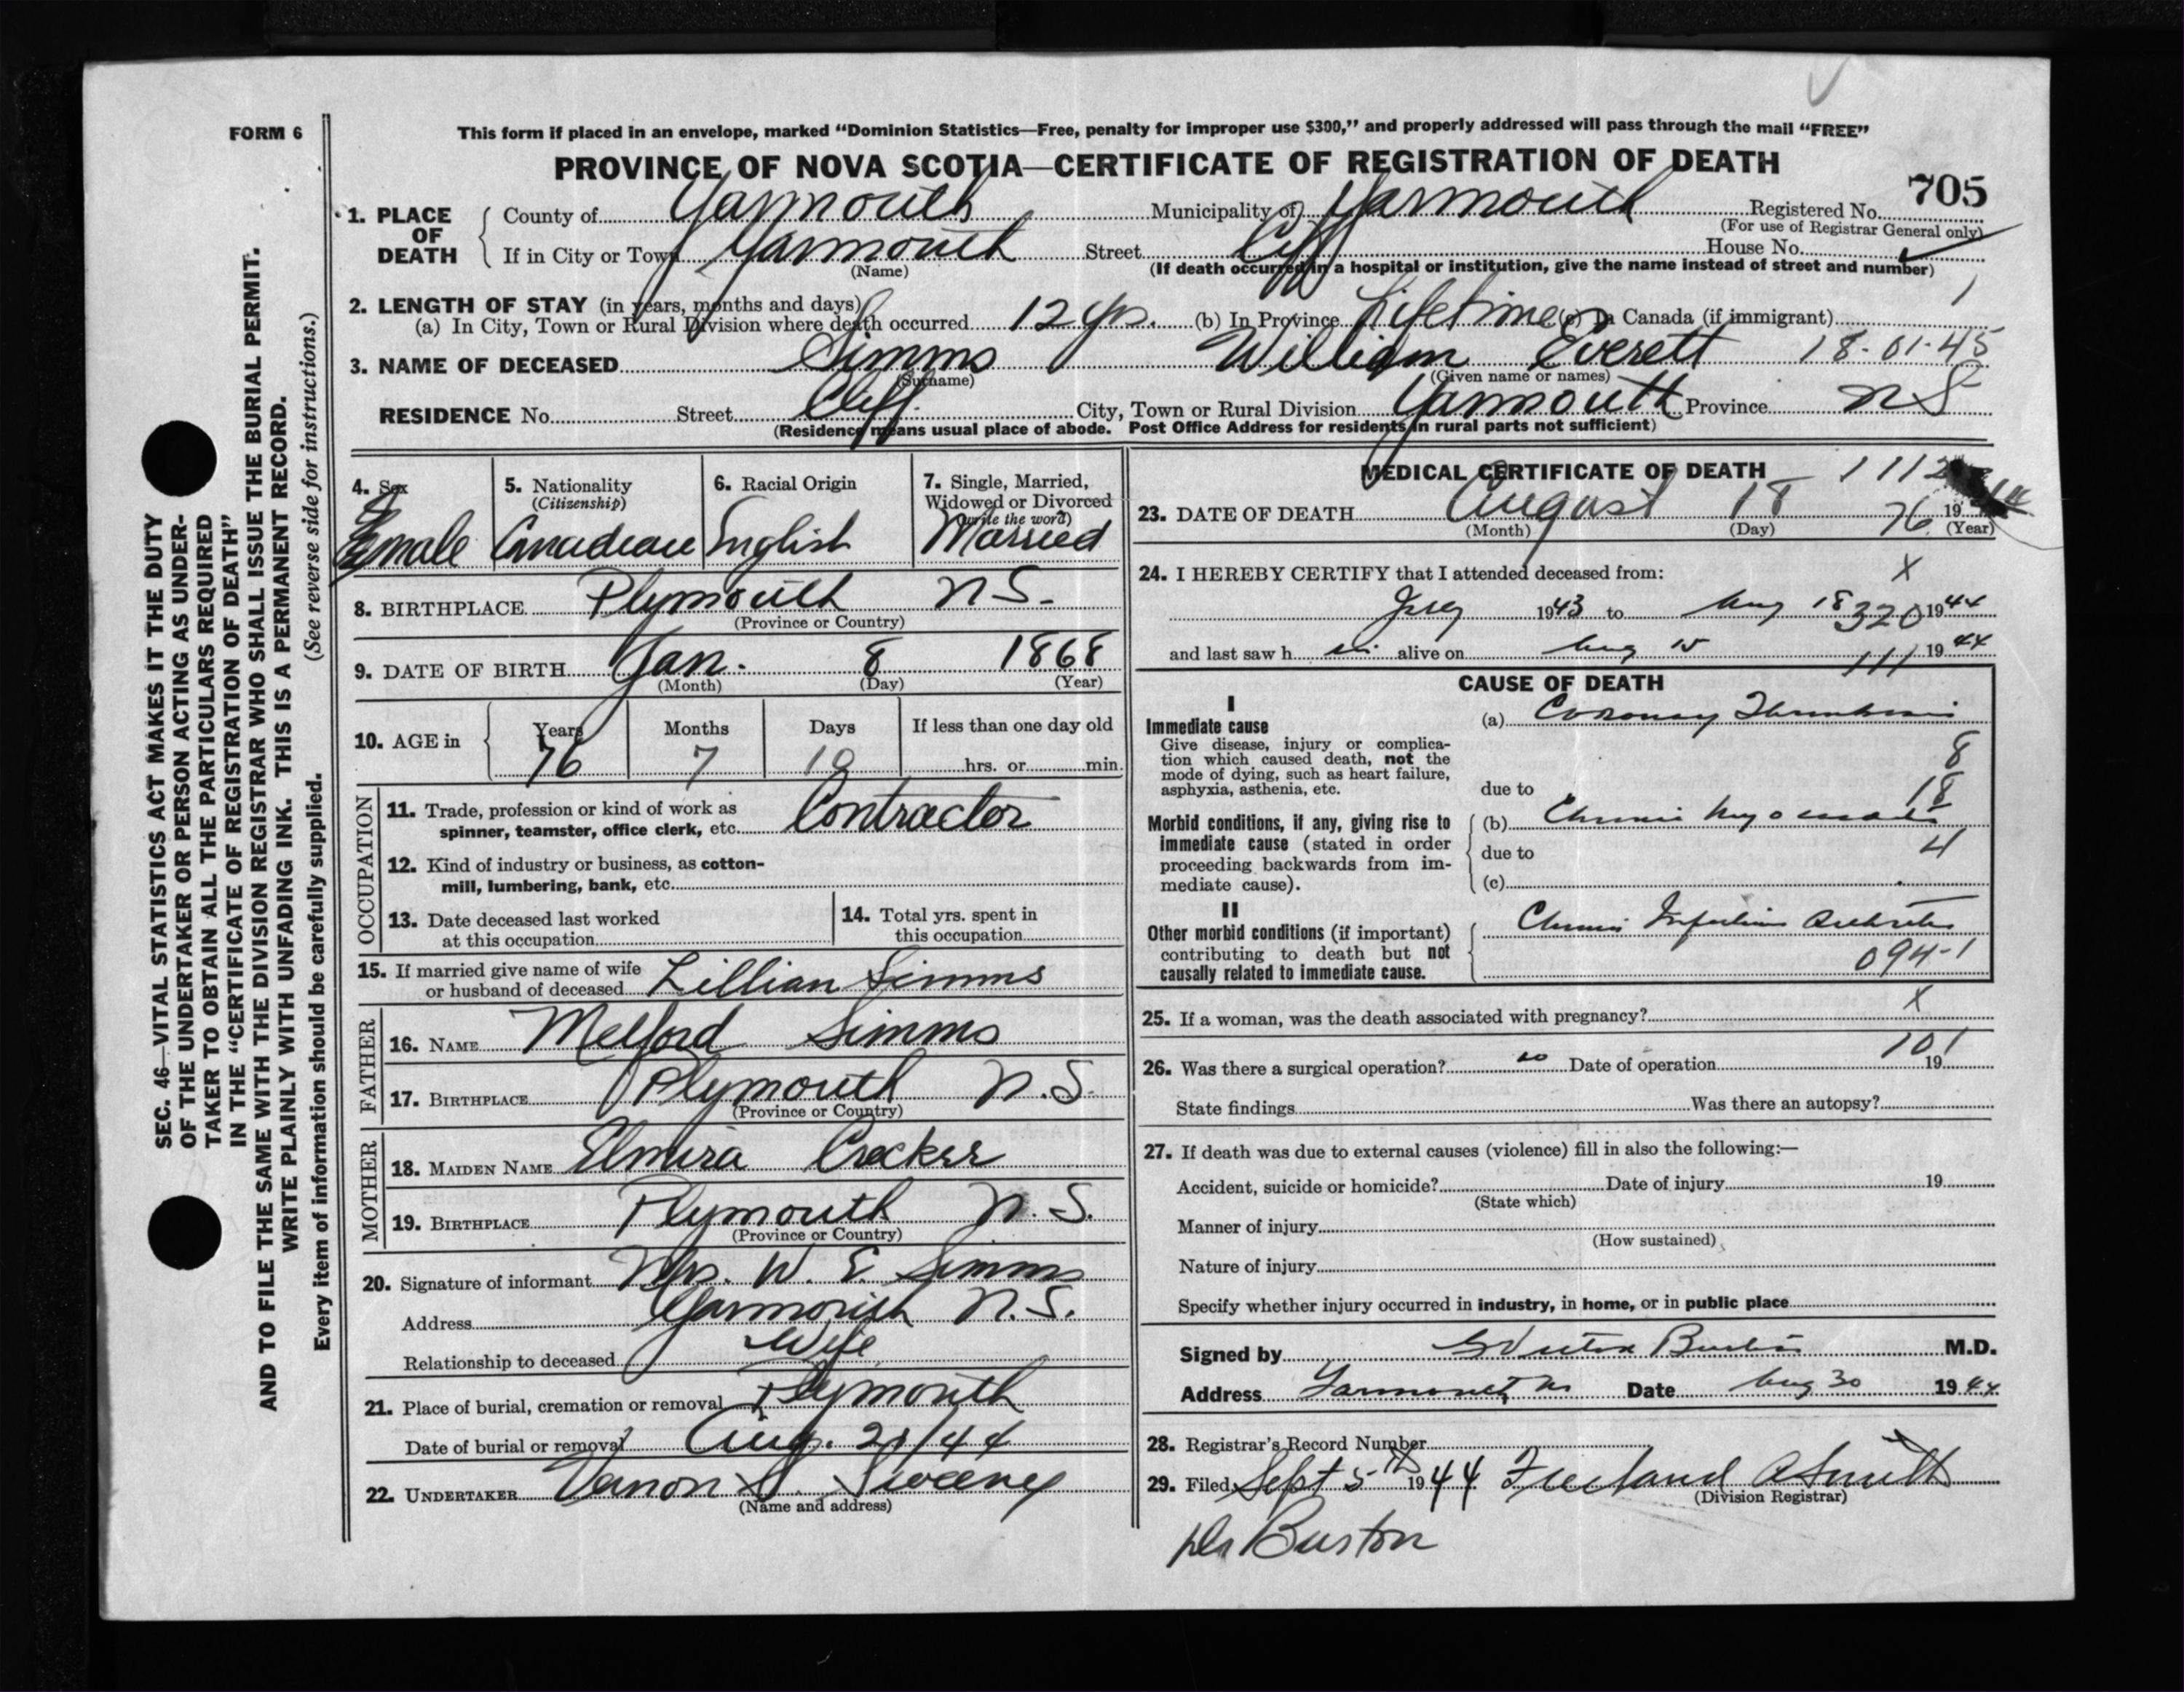 FORM 6
This form if placed in an envelope, marked "Dominion Statistics—Free, penalty for improper use $300," and properly addressed will pass through the mail "FREE"
PROVINCE OF NOVA SCOTIA—CERTIFICATE OF REGISTRATION OF DEATH
705
1. PLACE OF DEATH
County of Yarmouth Municipality of Yarmouth Registered No.
(For use of Registrar General only)
If in City or Town Yarmouth Street Cliff House No.
(Name) (If death occurred in a hospital or institution, give the name instead of street and number)
2. LENGTH OF STAY (in years, months and days)
(a) In City, Town or Rural Division where death occurred 12 yrs. (b) In Province Lifetime (c) In Canada (if immigrant)
3. NAME OF DECEASED Simms William Everett 18-01-45
(Surname) (Given name or names)
RESIDENCE No. Street Cliff City, Town or Rural Division Yarmouth Province N S
(Residence means usual place of abode. Post Office Address for residents in rural parts not sufficient)
4. Sex
male
5. Nationality
(Citizenship)
Canadian
6. Racial Origin
English
7. Single, Married,
Widowed or Divorced
(write the word)
Married
8. BIRTHPLACE Plymouth N S.
(Province or Country)
9. DATE OF BIRTH Jan. 8 1868
(Month) (Day) (Year)
10. AGE in
Years Months Days If less than one day old
76 7 10 hrs. or min.
OCCUPATION
11. Trade, profession or kind of work as
spinner, teamster, office clerk, etc. Contractor
12. Kind of industry or business, as cotton-
mill, lumbering, bank, etc.
13. Date deceased last worked
at this occupation
14. Total yrs. spent in
this occupation
15. If married give name of wife
or husband of deceased Lillian Simms
FATHER
16. NAME Melford Simms
17. BIRTHPLACE Plymouth N.S.
(Province or Country)
MOTHER
18. MAIDEN NAME Elmira Crocker
19. BIRTHPLACE Plymouth N.S.
(Province or Country)
20. Signature of informant Mrs. W. E. Simms
Address Yarmouth N.S.
Relationship to deceased Wife
21. Place of burial, cremation or removal Plymouth
Date of burial or removal Aug. 21/44
22. UNDERTAKER Vernon S. Sweeney
(Name and address)
MEDICAL CERTIFICATE OF DEATH 1112
23. DATE OF DEATH August 18 76 19
(Month) (Day) (Year)
24. I HEREBY CERTIFY that I attended deceased from: X
1943 to Aug 18 320 1944
and last saw h im alive on Aug 15 111 1944
CAUSE OF DEATH
I
Immediate cause
Give disease, injury or complica-
tion which caused death, not the
mode of dying, such as heart failure,
asphyxia, asthenia, etc.
(a) Coronary Thrombosis
8
due to 18
Morbid conditions, if any, giving rise to
Immediate cause (stated in order
proceeding backwards from im-
mediate cause).
(b) Chronic Myocarditis
due to 4
(c)
II
Other morbid conditions (if important)
contributing to death but not
causally related to immediate cause.
Chronic Infectious Arthritis
094-1
25. If a woman, was the death associated with pregnancy? X
101
26. Was there a surgical operation? no Date of operation 19
State findings Was there an autopsy?
27. If death was due to external causes (violence) fill in also the following:—
Accident, suicide or homicide? Date of injury 19
(State which)
Manner of injury
(How sustained)
Nature of injury
Specify whether injury occurred in industry, in home, or in public place
Signed by Burton M.D.
Address Yarmouth NS Date Aug 30 1944
28. Registrar's Record Number
29. Filed Sept 5th 1944 Freeland A Smith
(Division Registrar)
Dr Burton
SEC. 46—VITAL STATISTICS ACT MAKES IT THE DUTY
OF THE UNDERTAKER OR PERSON ACTING AS UNDER-
TAKER TO OBTAIN ALL THE PARTICULARS REQUIRED
IN THE "CERTIFICATE OF REGISTRATION OF DEATH"
AND TO FILE THE SAME WITH THE DIVISION REGISTRAR WHO SHALL ISSUE THE BURIAL PERMIT.
WRITE PLAINLY WITH UNFADING INK. THIS IS A PERMANENT RECORD.
Every item of information should be carefully supplied. (See reverse side for instructions.)